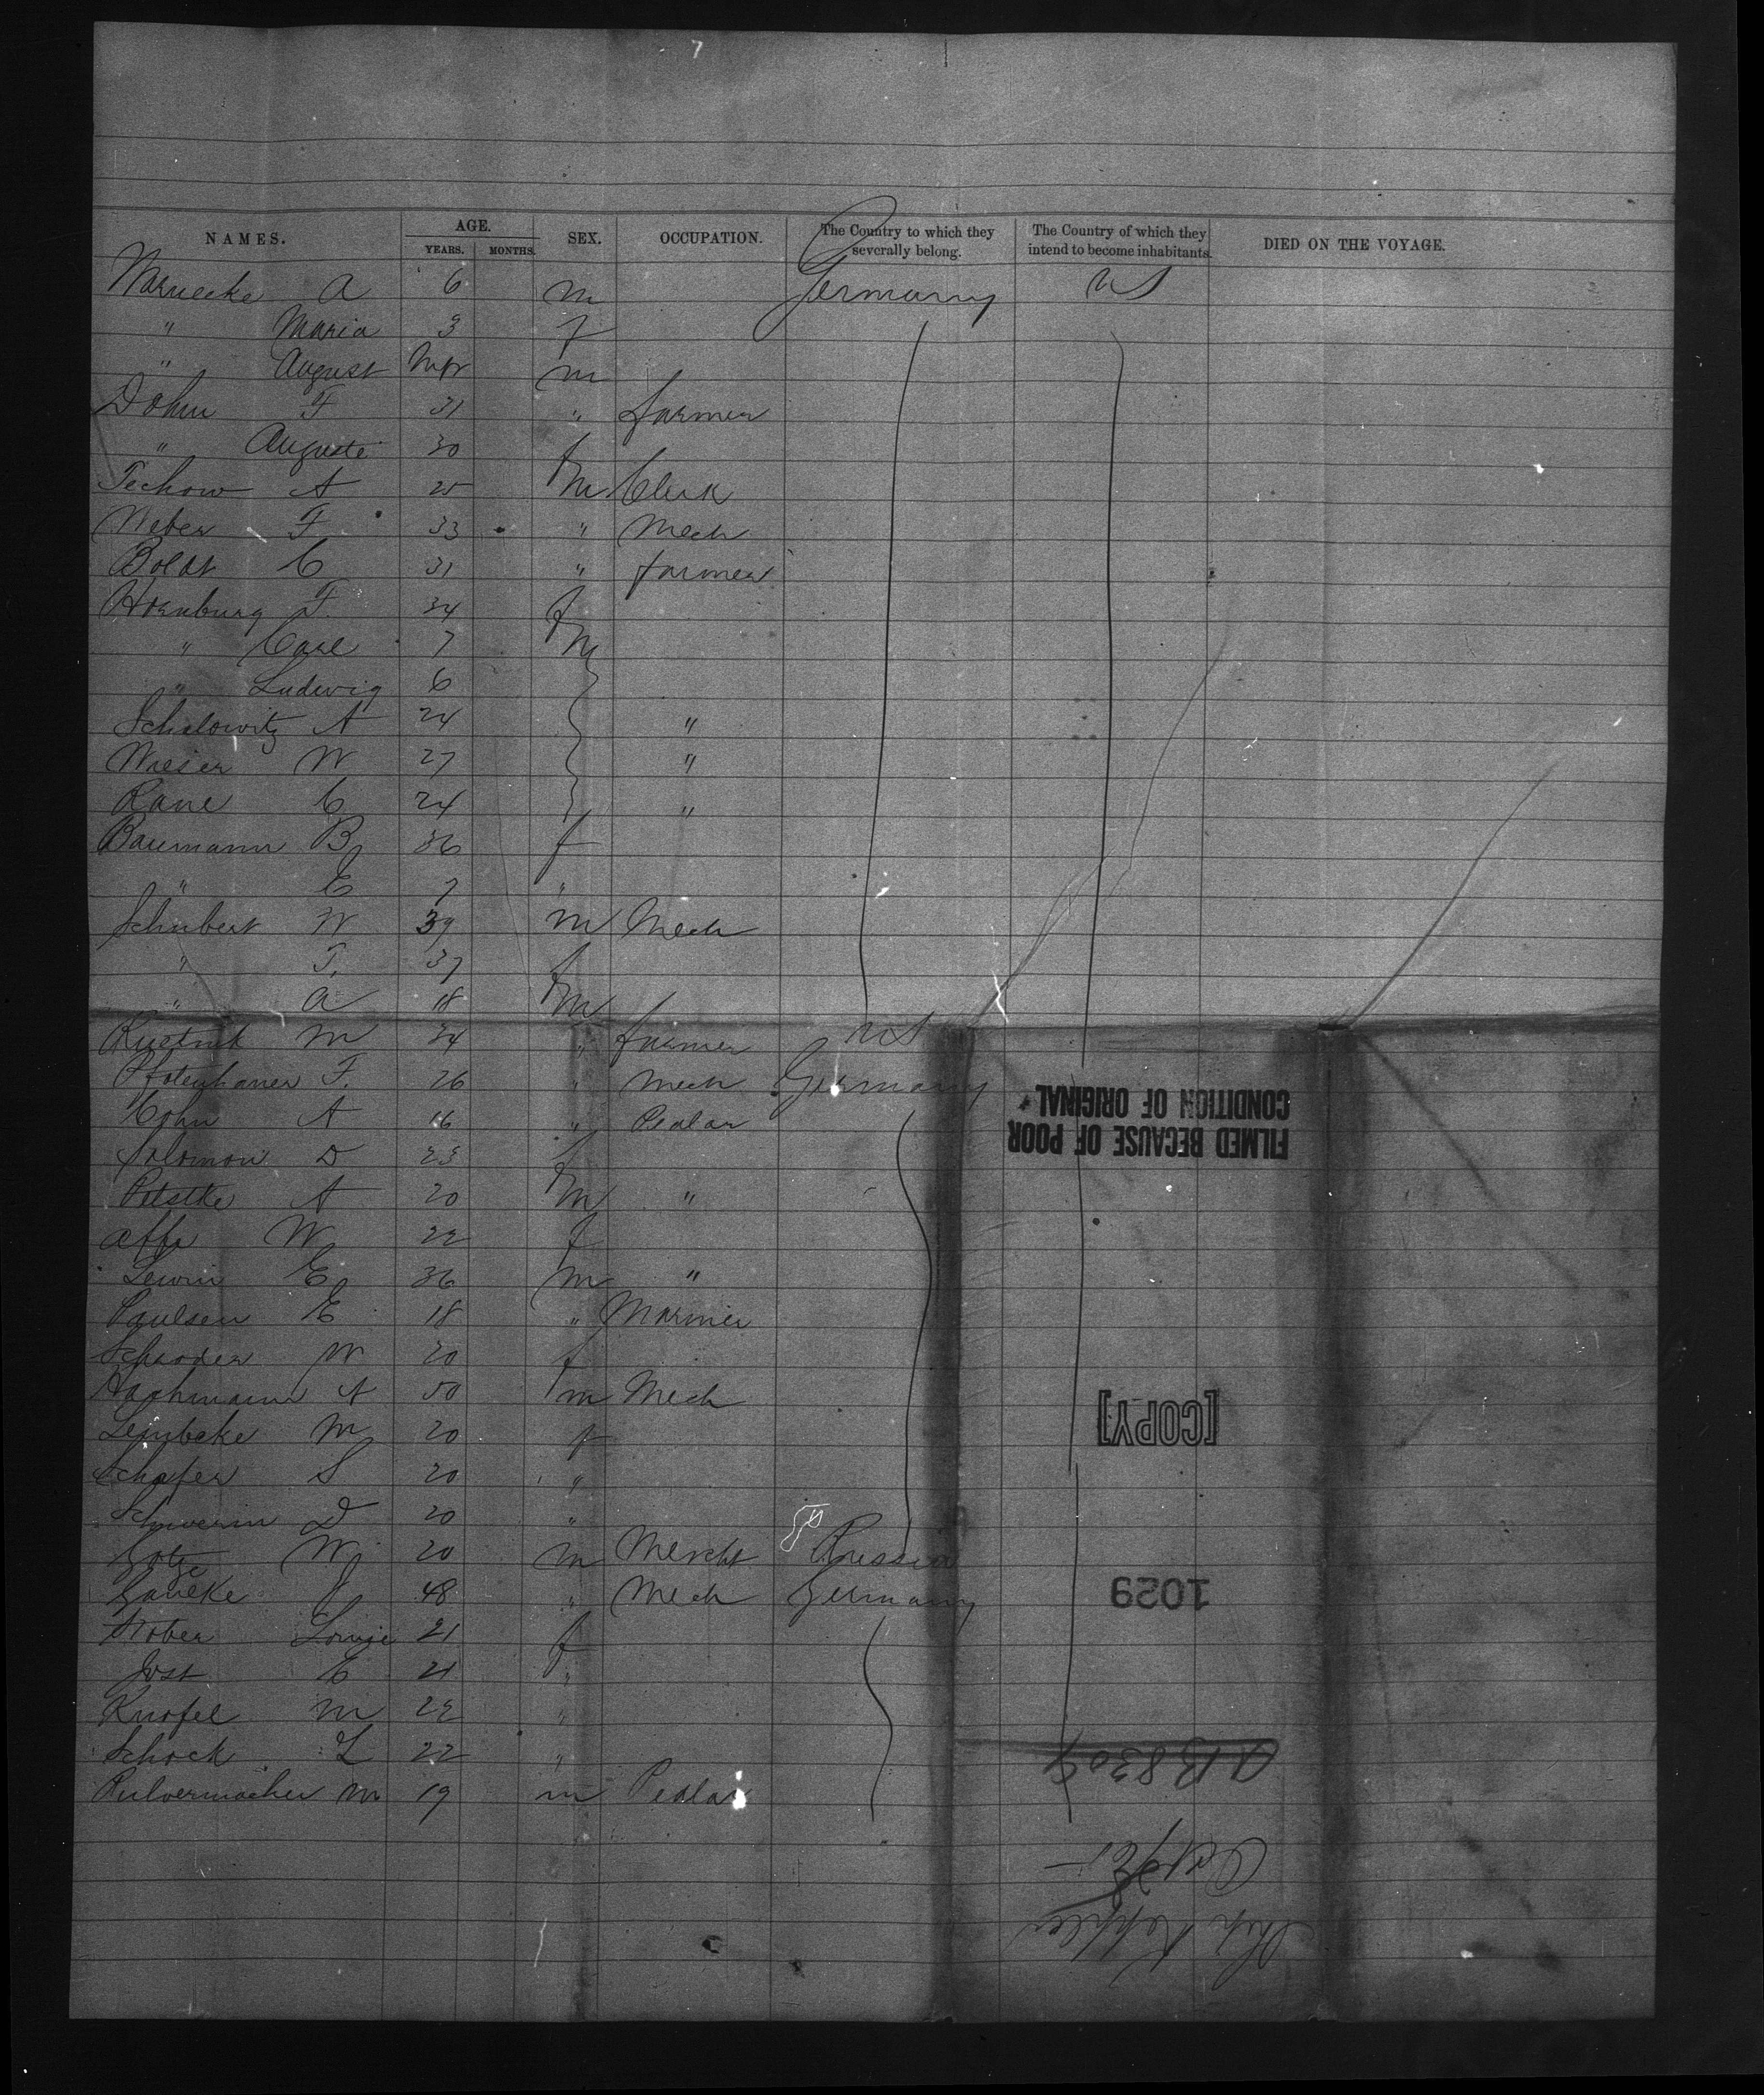 NAMES. AGE. SEX. OCCUPATION. The Country to which they severally belong. The Country of which they intend to become inhabitants. DIED ON THE VOYAGE.
YEARS. MONTHS.
Warnecke A 6 m Germany US
" Maria 3 f
" August m
Döhn F 31 " farmer
" Auguste 30 f
Techow A 25 m Clerk
Weber F 33 " Mech
Boldt C 31 " farmer
Hornburg F. 34 f
" Carl 7 m
" Ludwig 6
Schalowitz A 24 "
Wieser W 27 "
Rane C 24 "
Baumann B 36 f
" E 7 "
Schubert W 39 m Mech
" F. 37 f
" A 18 m
M 34 " farmer US
Pfotenhauer F. 26 " Mech Germany
Cohn A 16 " Pedlar
Solomon D 23 f
A 20 m "
W 22 f
Lewin E 36 m "
Paulsen E 18 " Mariner
Schroder W 20 f
Hachmann A 50 m Mech
Lembcke M 20 f
Schafer S 20 "
Schwerin D 20 "
Gotze W 20 m Mercht Russia
Ganeke J 48 " Mech Germany
Stober Louise 21 f
Jost C 21 "
Knofel M 22 "
Schock L 22 "
Pulvermacher M 19 m Pedlar
FILMED BECAUSE OF POOR
CONDITION OF ORIGINAL
[COPY]
1029
Ship Keppler